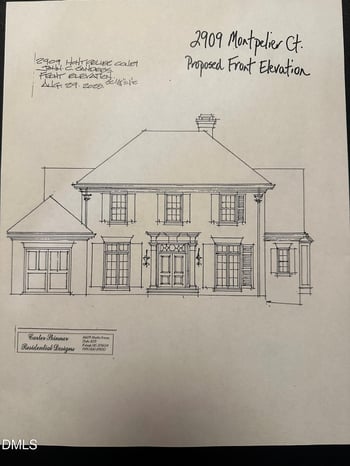 2909 Montpelier Ct.
Proposed Front Elevation
2909 MONTPELIER COURT
FRONT ELEVATION
AUG. 29. 2025
Carter Skinner
Residential Designs
DMLS